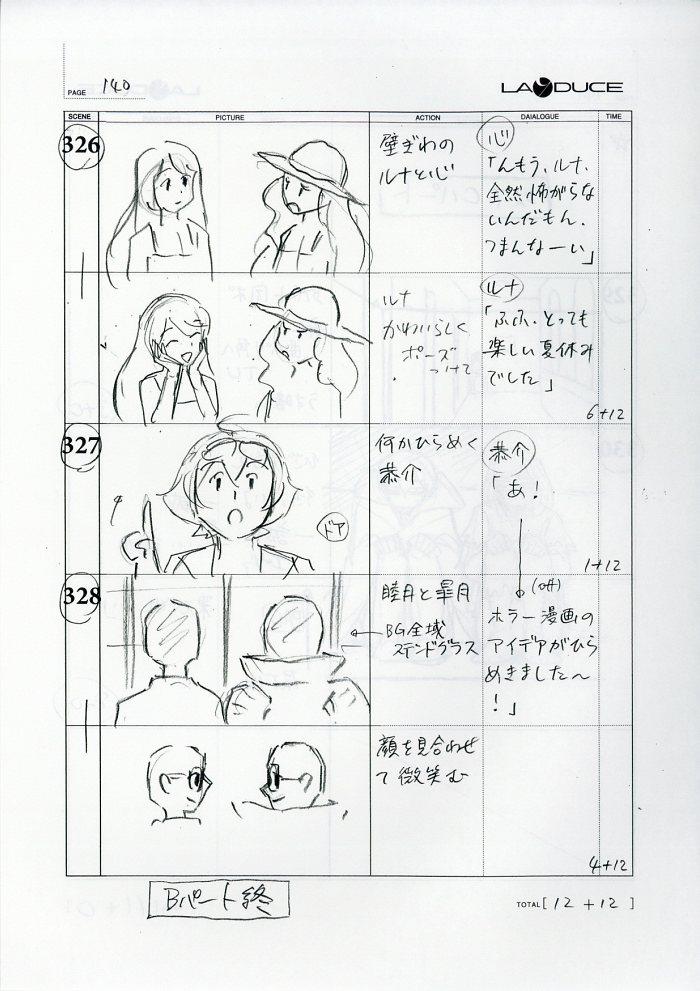 PAGE 140
LADUCE
SCENE PICTURE ACTION DAIALOGUE TIME
326
壁ぎわの
ルナと心
心
「んもう、ルナ、
全然怖がらな
いんだもん、
つまんなーい」
ルナ
かわいらしく
ポーズ
つけて
ルナ
「ふふ、とっても
楽しい夏休み
でした」
6+12
327
何かひらめく
恭介
ドア
恭介
「あ!
1+12
328
睦月と皐月
BG全域
ステンドグラス
(off)
ホラー漫画の
アイデアがひら
めきました〜
!」
顔を見合わせ
て微笑む
4+12
Bパート終
TOTAL [ 12 + 12 ]